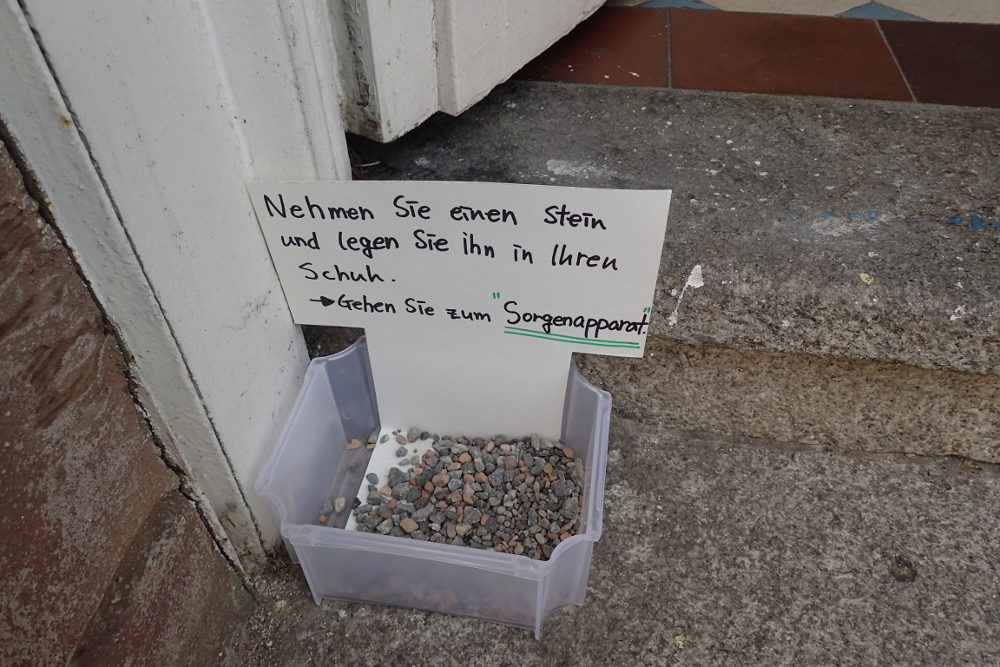 Nehmen Sie einen Stein
und legen Sie ihn in Ihren
Schuh.
→ Gehen Sie zum "Sorgenapparat."